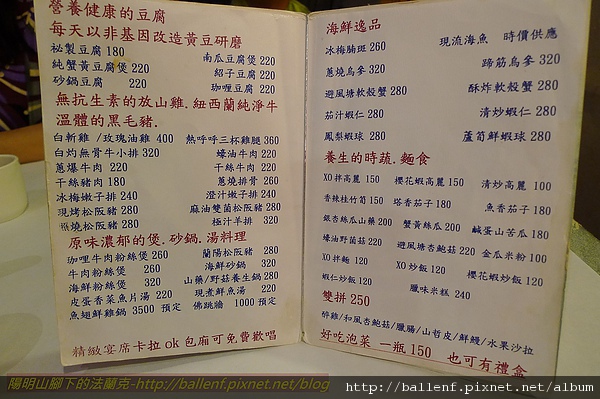 營養健康的豆腐
每天以非基因改造黃豆研磨
祕製豆腐 180 南瓜豆腐煲 220
純蟹黃豆腐煲 220 紹子豆腐 220
砂鍋豆腐 220 咖哩豆腐 220
無抗生素的放山雞.紐西蘭純淨牛
溫體的黑毛豬.
白斬雞 /玫瑰油雞 400 熱呼呼三杯雞腿 360
白灼無骨牛小排 320 蠔油牛肉 220
蔥爆牛肉 220 干絲牛肉 220
干絲豬肉 180 蔥燒排骨 260
冰梅嫩子排 240 澄汁嫩子排 240
現烤松阪豬 280 麻油雙菌松阪豬 280
照燒松阪豬 280 極汁羊排 320
原味濃郁的煲.砂鍋.湯料理
咖哩牛肉粉絲煲 260 蘭陽松阪豬 280
牛肉粉絲煲 260 海鮮砂鍋 320
海鮮粉絲煲 320 山藥/野菇養生鍋 280
皮蛋香菜魚片湯 220 現煮鮮魚湯 220
魚翅鮮雞鍋 3500 預定 佛跳牆 1000 預定
精緻宴席卡拉ok包廂可免費歡唱
海鮮逸品
冰梅腩斑 260 現流海魚 時價供應
蔥燒烏參 320 蹄筋烏參 320
避風塘軟殼蟹 280 酥炸軟殼蟹 280
茄汁蝦仁 280 清炒蝦仁 280
鳳梨蝦球 280 蘆筍鮮蝦球 280
養生的時蔬.麵食
XO拌高麗 150 櫻花蝦高麗 150 清炒高麗 100
香辣桂竹筍 150 塔香茄子 180 魚香茄子 180
銀杏絲瓜山藥 200 蟹黃絲瓜 200 鹹蛋山苦瓜 180
蠔油野菌菇 220 避風塘杏鮑菇 220 金瓜米粉 100
XO拌麵 120 XO炒飯 120 櫻花蝦炒飯 120
蝦仁炒飯 120 臘味米糕 240
雙拼 250
醉雞/和風杏鮑菇/臘腸/山哲皮/鮮鰻/水果沙拉
好吃泡菜 一瓶150 也可有禮盒
陽明山腳下的法蘭克-http://ballenf.pixnet.net/blog
http://ballenf.pixnet.net/album